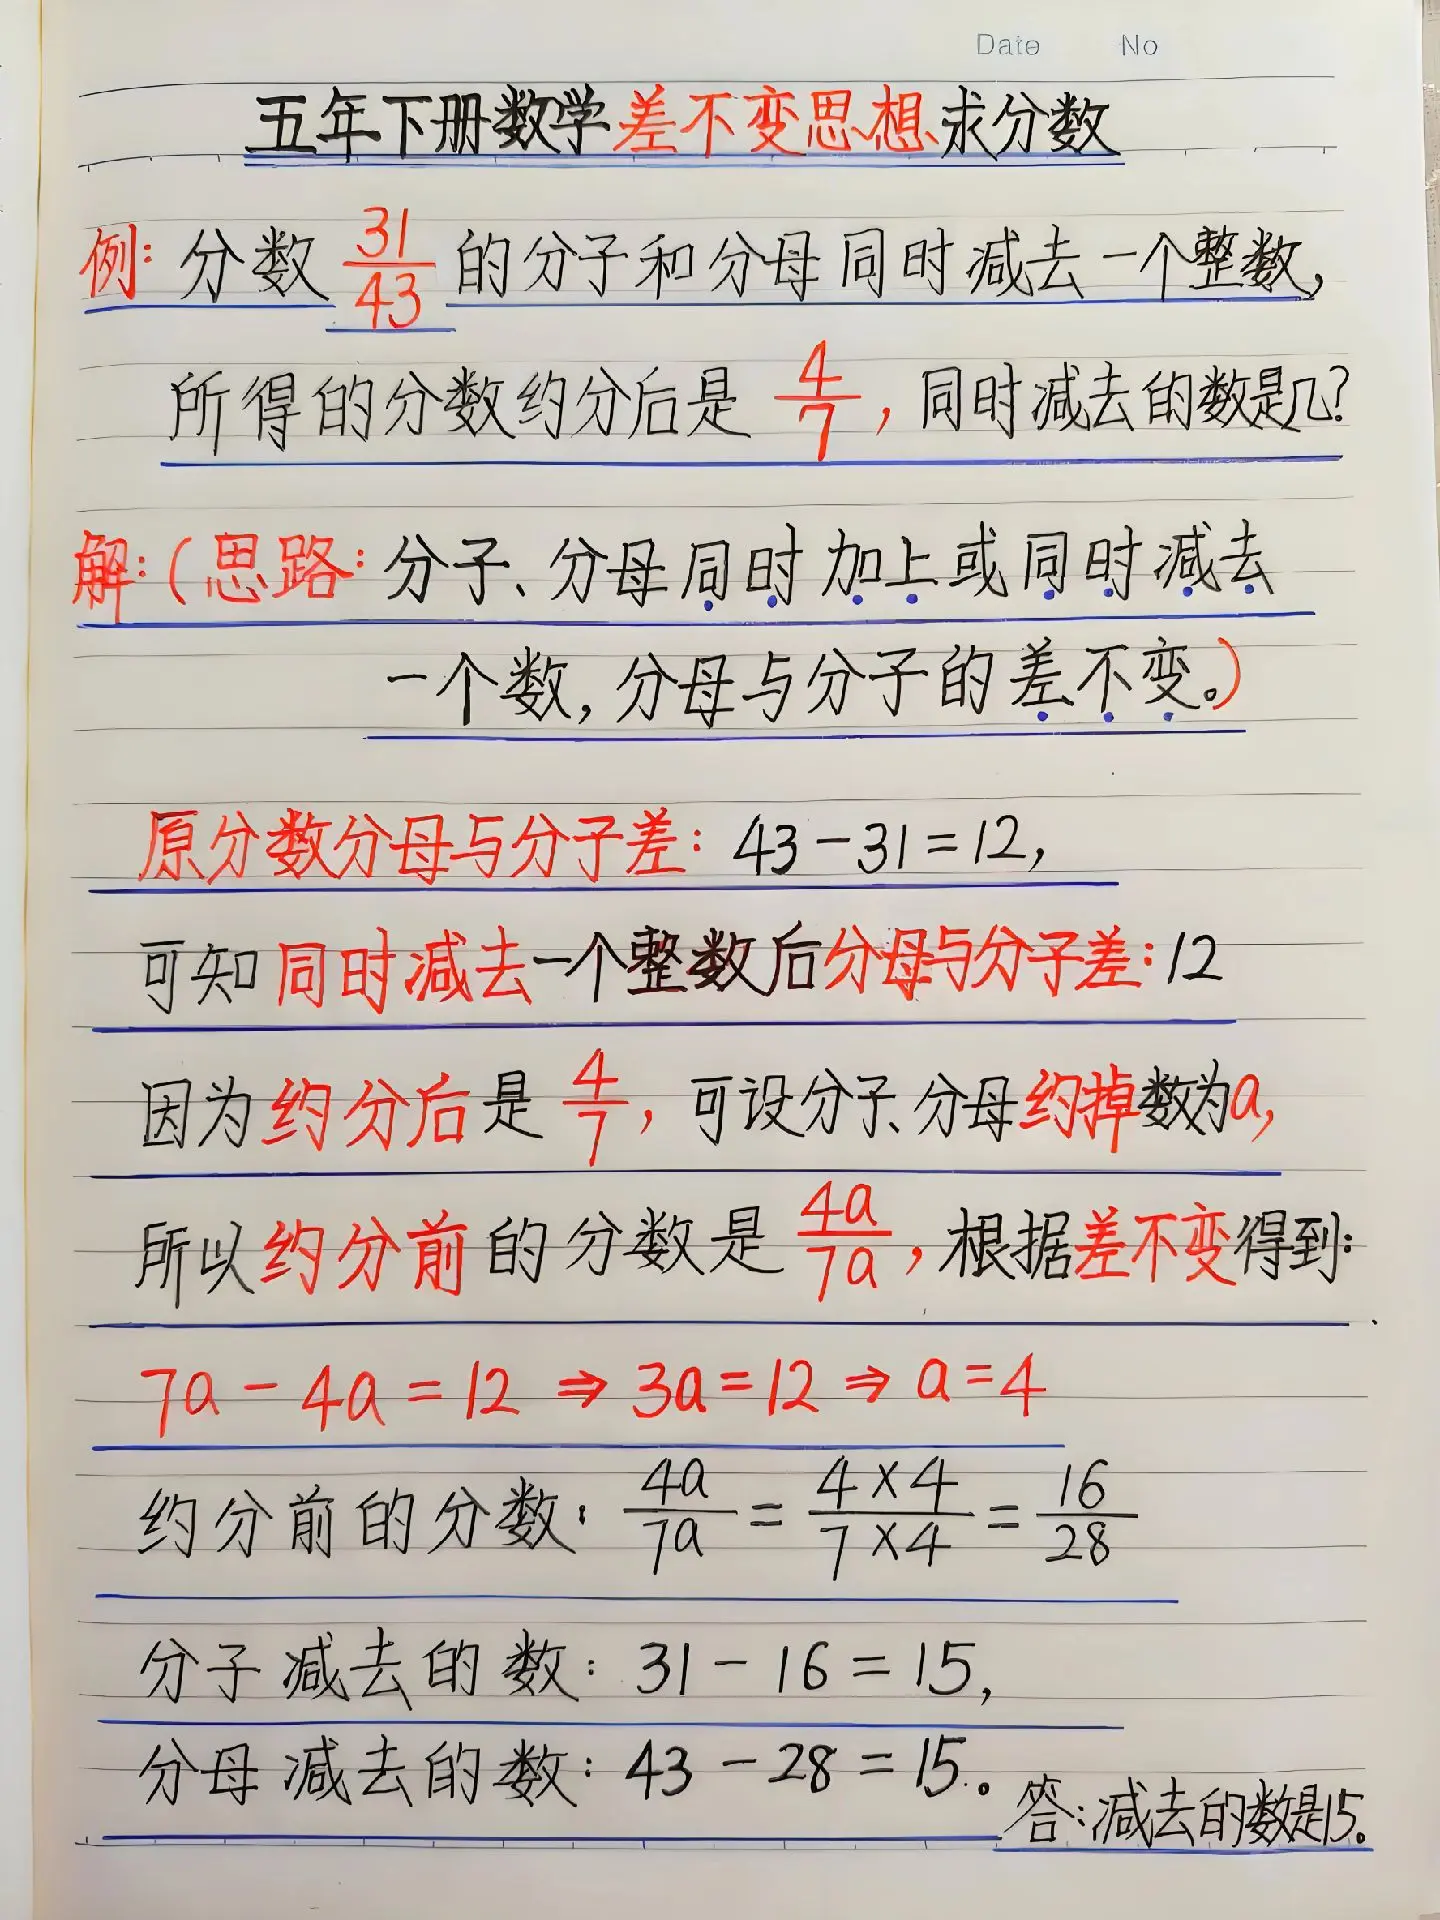 Date No
五年下册数学差不变思想求分数
例: 分数 31/43 的分子和分母同时减去一个整数,
所得的分数约分后是 4/7, 同时减去的数是几?
解:(思路: 分子、分母同时加上或同时减去
一个数, 分母与分子的差不变。)
原分数分母与分子差: 43-31=12,
可知同时减去一个整数后分母与分子差: 12
因为约分后是 4/7, 可设分子、分母约掉数为a,
所以约分前的分数是 4a/7a, 根据差不变得到:
7a-4a=12 ⇒ 3a=12 ⇒ a=4
约分前的分数: 4a/7a = 4×4/7×4 = 16/28
分子减去的数: 31-16=15,
分母减去的数: 43-28=15。
答:减去的数是15。